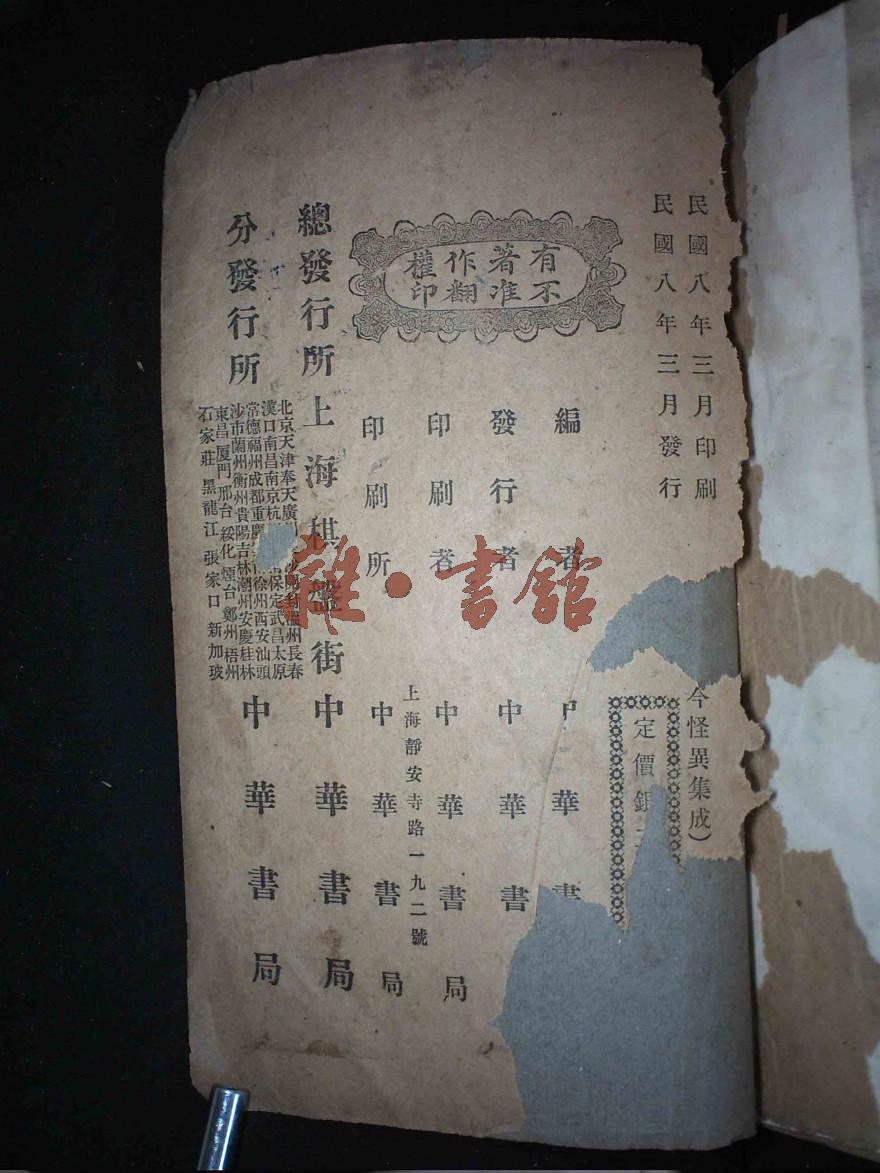 民國八年三月印刷
民國八年三月發行
今怪異集成）
定價銀
有著作權
不准翻印
編者 中華書
發行者 中華書
印刷者 中華書局
印刷所 上海靜安寺路一九二號 中華書局
總發行所 上海棋盤街 中華書局
分發行所
北京天津奉天廣 開封溫州長春
漢口南昌南京杭 保定武昌太原
常德福州成都重慶 徐州西安汕頭
沙市蘭州衡州貴陽吉林潮州安慶桂林
東昌厦門邢台綏化煙台鄭州梧州
石家莊黑龍江張家口新加玻
中華書局
雜·書館